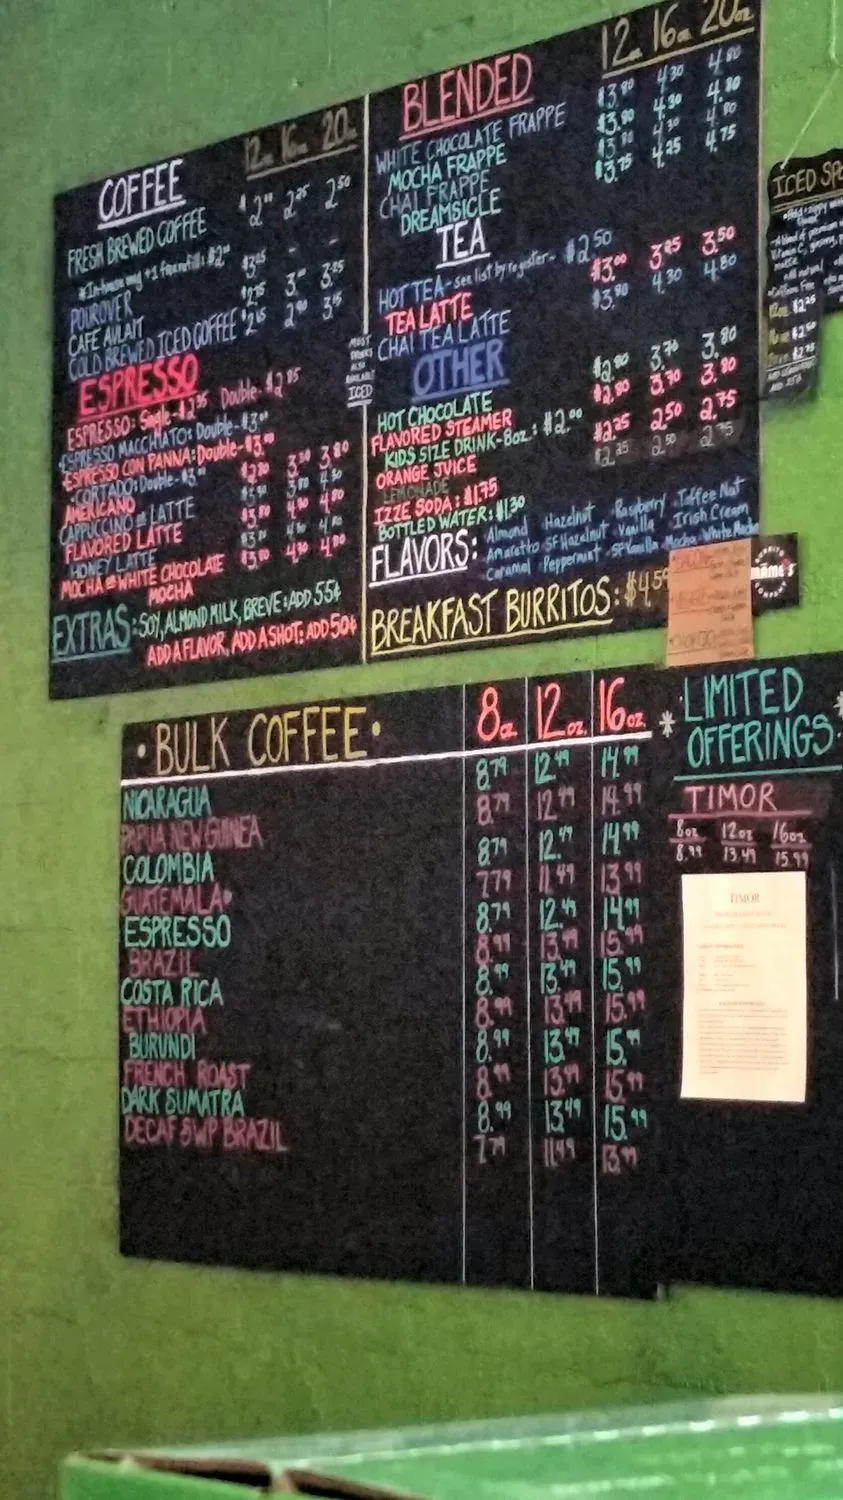 COFFEE 12oz 16oz 20oz
FRESH BREWED COFFEE $2.00 2.25 2.50
*In-house mug +1 free refill: $2.00
POUROVER $3.05 - -
CAFE AULAIT $2.75 3.00 3.25
COLD BREWED ICED COFFEE $2.65 2.90 3.15
MOST
DRINKS
ALSO
AVAILABLE
ICED
ESPRESSO
ESPRESSO: Single- $2.35 Double- $2.85
ESPRESSO MACCHIATO: Double- $3.00
ESPRESSO CON PANNA: Double- $3.00
CORTADO: Double- $3.
AMERICANO $2.80 3.30 3.80
CAPPUCCINO or LATTE
FLAVORED LATTE $3.80 4.30 4.80
HONEY LATTE
MOCHA or WHITE CHOCOLATE MOCHA $3.80 4.30 4.80
EXTRAS: SOY, ALMOND MILK, BREVE: ADD 55¢
ADD A FLAVOR, ADD A SHOT: ADD 50¢
BLENDED 12oz 16oz 20oz
WHITE CHOCOLATE FRAPPE $3.80 4.30 4.80
MOCHA FRAPPE $3.80 4.30 4.80
CHAI FRAPPE $3.80 4.30 4.80
DREAMSICLE $3.75 4.25 4.75
TEA
HOT TEA- see list by register- $2.50
TEA LATTE $3.00 3.25 3.50
CHAI TEA LATTE $3.80 4.30 4.80
OTHER
HOT CHOCOLATE 3.80
FLAVORED STEAMER 3.80
KIDS SIZE DRINK-8oz.: $2.00
ORANGE JUICE $2.25 2.50 2.75
LEMONADE $2.25 2.50 2.75
IZZE SODA: $1.75
BOTTLED WATER: $1.30
FLAVORS: Almond Hazelnut Raspberry Toffee Nut
Amaretto SF Hazelnut Vanilla Irish Cream
Caramel Peppermint SF Vanilla Mocha White Mocha
BREAKFAST BURRITOS: $4.5
BURRITO
MÁME'S
COMPANY
ICED SP
• BULK COFFEE • 8oz 12oz. 16oz.
NICARAGUA 8.79 12.49 14.99
PAPUA NEW GUINEA 8.79 12.49 14.99
COLOMBIA 8.79 12.49 14.99
GUATEMALA 7.79 11.49 13.99
ESPRESSO 8.79 12.49 14.99
BRAZIL 8.99 13.49 15.99
COSTA RICA 8.99 13.49 15.99
ETHIOPIA 8.99 13.49 15.99
BURUNDI 8.99 13.49 15.99
FRENCH ROAST 8.99 13.49 15.99
DARK SUMATRA 8.99 13.49 15.99
DECAF SWP BRAZIL 7.79 11.49 13.99
* LIMITED *
OFFERINGS
TIMOR
8oz 12oz 16oz
8.99 13.49 15.99
TIMOR